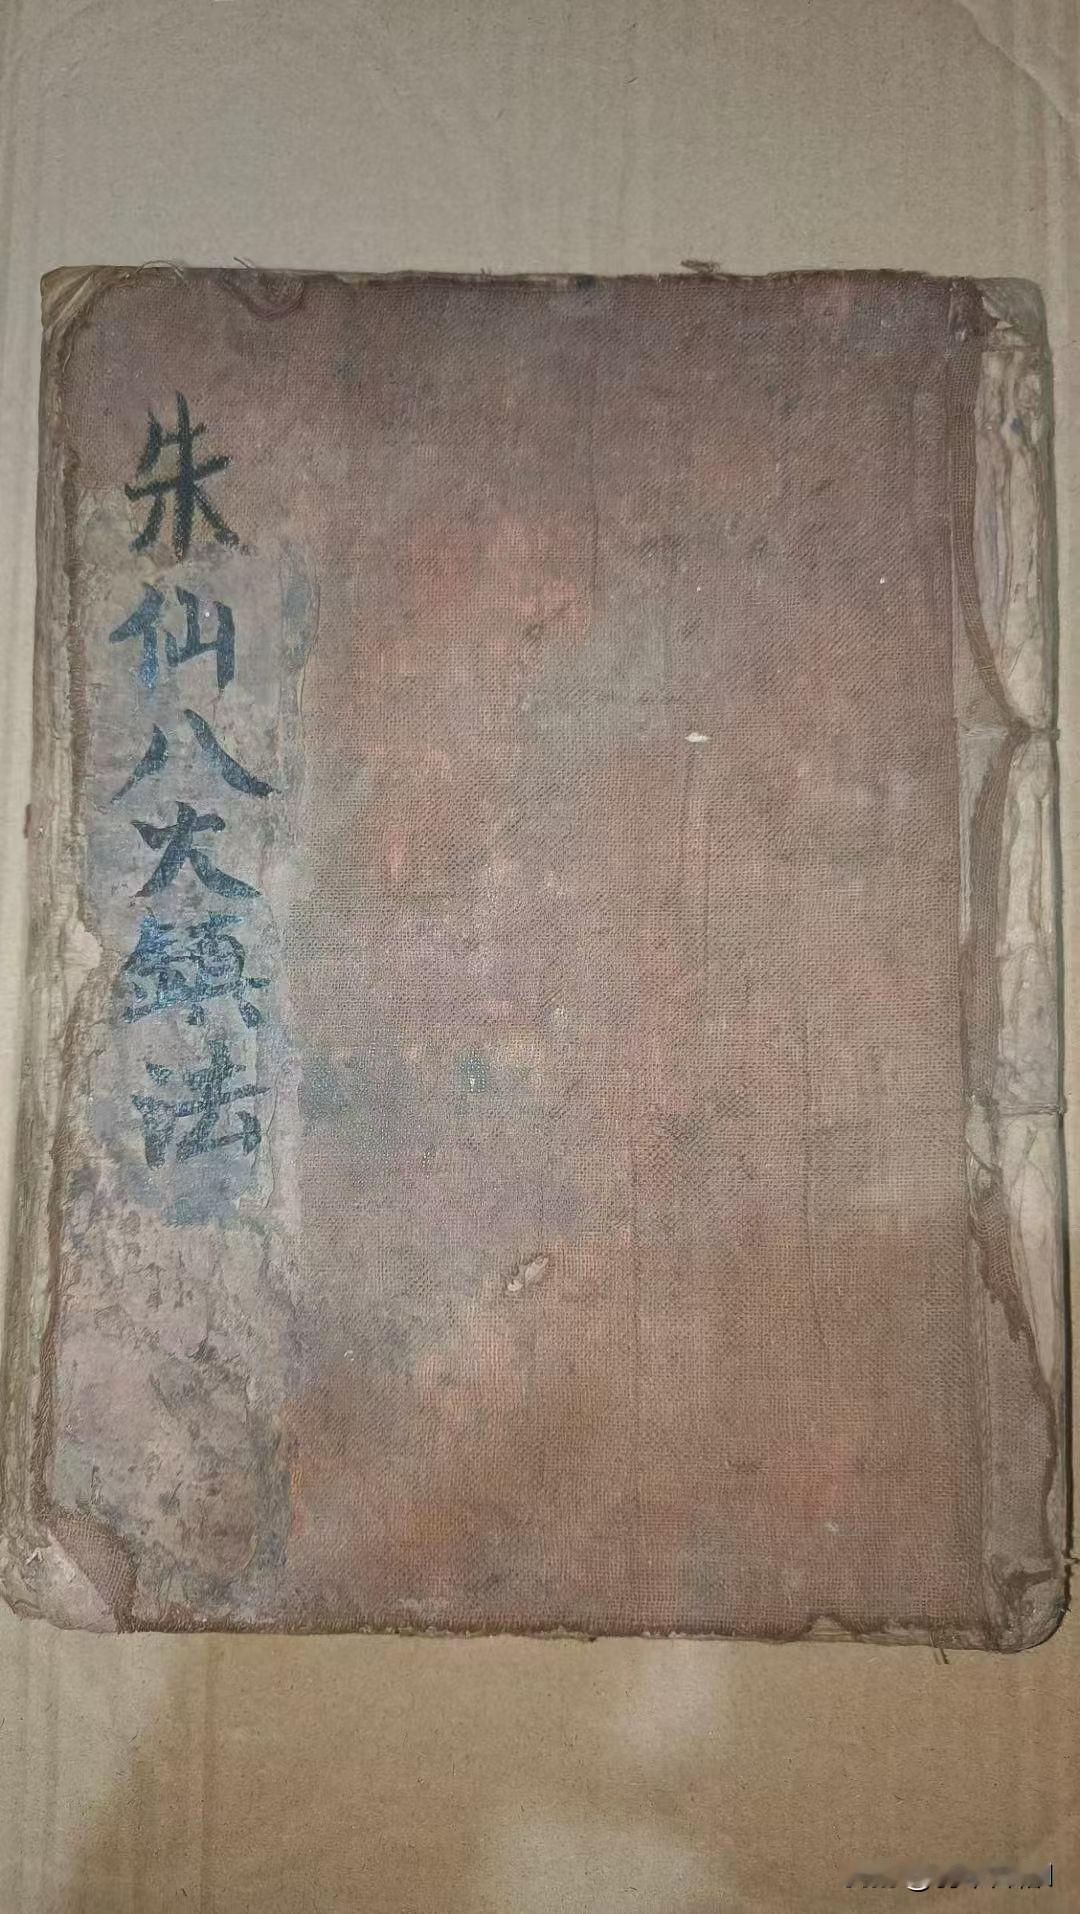 朱仙八大鎮法